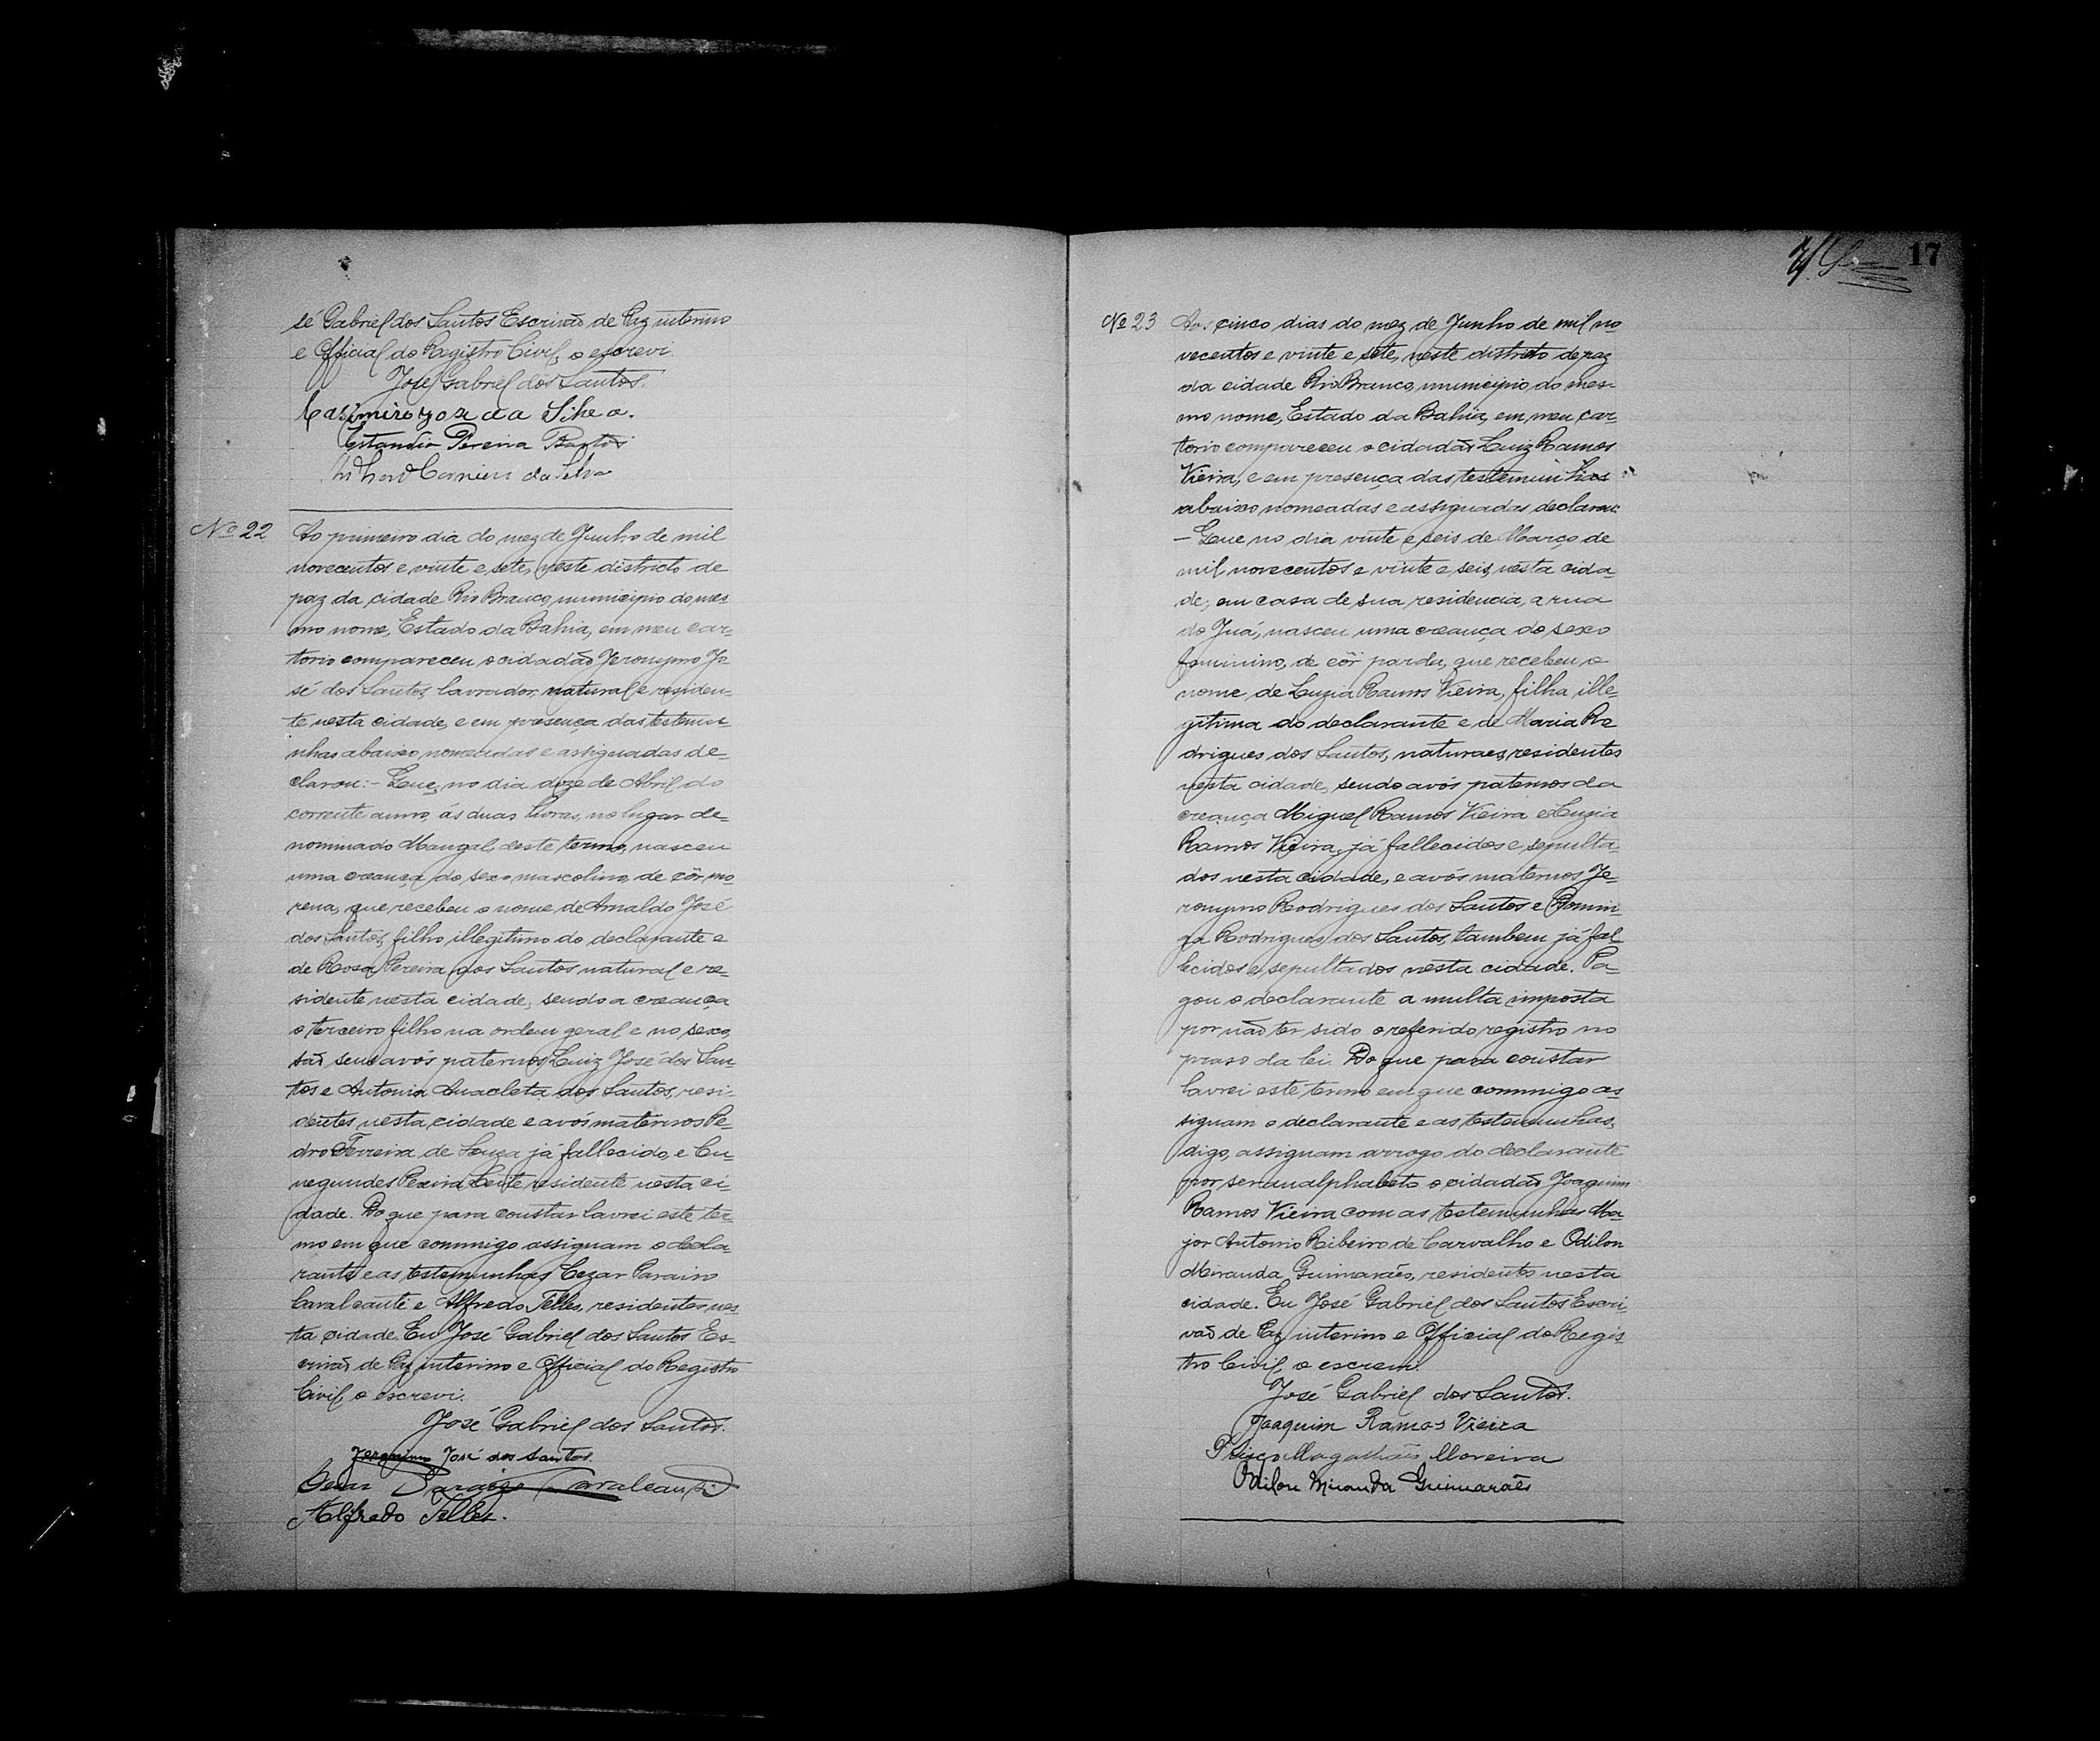 sé Gabriel dos Santos Escrivão de Paz interino
e Official do Registro Civil, o escrevi.
José Gabriel dos Santos.
Casimiro da Silva.
Pereira Bastos
Carneiro da Silva
Nº 22
Ao primeiro dia do mez de Junho de mil
novecentos e vinte e sete, neste districto de
paz da cidade Rio Branco, municipio do mes-
mo nome, Estado da Bahia, em meu car-
torio compareceu o cidadão Jeronymo Jo-
sé dos Santos, lavrador, natural e residen-
te nesta cidade, e em presença das testemu-
nhas abaixo nomeadas e assignadas de-
clarou:- Que, no dia doze de Abril do
corrente anno, ás duas horas, no lugar de-
nominado Mangal, deste termo, nasceu
uma creança do sexo mascolino, de côr mo-
rena, que recebeu o nome de Arnaldo José
dos Santos, filho illegitimo do declarante e
de Rosa Pereira dos Santos natural e re-
sidente nesta cidade, sendo a creança
o terceiro filho na ordem geral e no sexo,
são seus avós paternos Luiz José dos San-
tos e Antonia Anacleta dos Santos, resi-
dentes nesta cidade e avós maternos Pe-
dro Ferreira de Souza já fallecido, e Cu-
negundes Pereira Leite residente nesta ci-
dade. Do que para constar lavrei este ter-
mo em que commigo assignam o decla-
rante e as testemunhas Cezar Paraiso
Cavalcante e Alfredo Telles, residentes nes-
ta cidade. Eu José Gabriel dos Santos Es-
crivão de Paz interino e Official do Registro
Civil, o escrevi.
José Gabriel dos Santos.
Jeronimo José dos Santos.
Cezar Paraizo Cavalcanti
Alfredo Telles.
17
Nº 23
Aos cinco dias do mez de Junho de mil no-
vecentos e vinte e sete, neste districto de paz
da cidade Rio Branco, municipio do mes-
mo nome, Estado da Bahia, em meu car-
torio compareceu o cidadão Luiz Ramos
Vieira, e em presença das testemunhas
abaixo nomeadas e assignadas declarou:
- Que no dia vinte e seis de Março de
mil novecentos e vinte e seis, nesta cida-
de, em casa de sua residencia, a rua
do Juá, nasceu uma creança do sexo
feminino, de côr parda, que recebeu o
nome de Luzia Ramos Vieira, filha ille-
gitima do declarante e de Maria Ro-
drigues dos Santos, naturaes, residentes
nesta cidade, sendo avós paternos da
creança Miguel Ramos Vieira e Luzia
Ramos Vieira, já fallecidos e sepulta-
dos nesta cidade, e avós maternos Je-
ronymo Rodrigues dos Santos e Domin-
ga Rodrigues dos Santos, tambem já fal-
lecidos e sepultados nesta cidade. Pa-
gou o declarante a multa imposta
por não ter sido o referido registro no
praso da lei. Do que para constar
lavrei este termo em que commigo as-
signam o declarante e as testemunhas,
digo, assignam arrogo do declarante
por ser analphabeto o cidadão Joaquim
Ramos Vieira com as testemunhas Ma-
jor Antonio Ribeiro de Carvalho e Odilon
Miranda Guimarães, residentes nesta
cidade. Eu José Gabriel dos Santos Escri-
vão de Paz interino e Official do Regis-
tro Civil, o escrevi.
José Gabriel dos Santos.
Joaquim Ramos Vieira
Prisco Magalhães Moreira
Odilon Miranda Guimarães